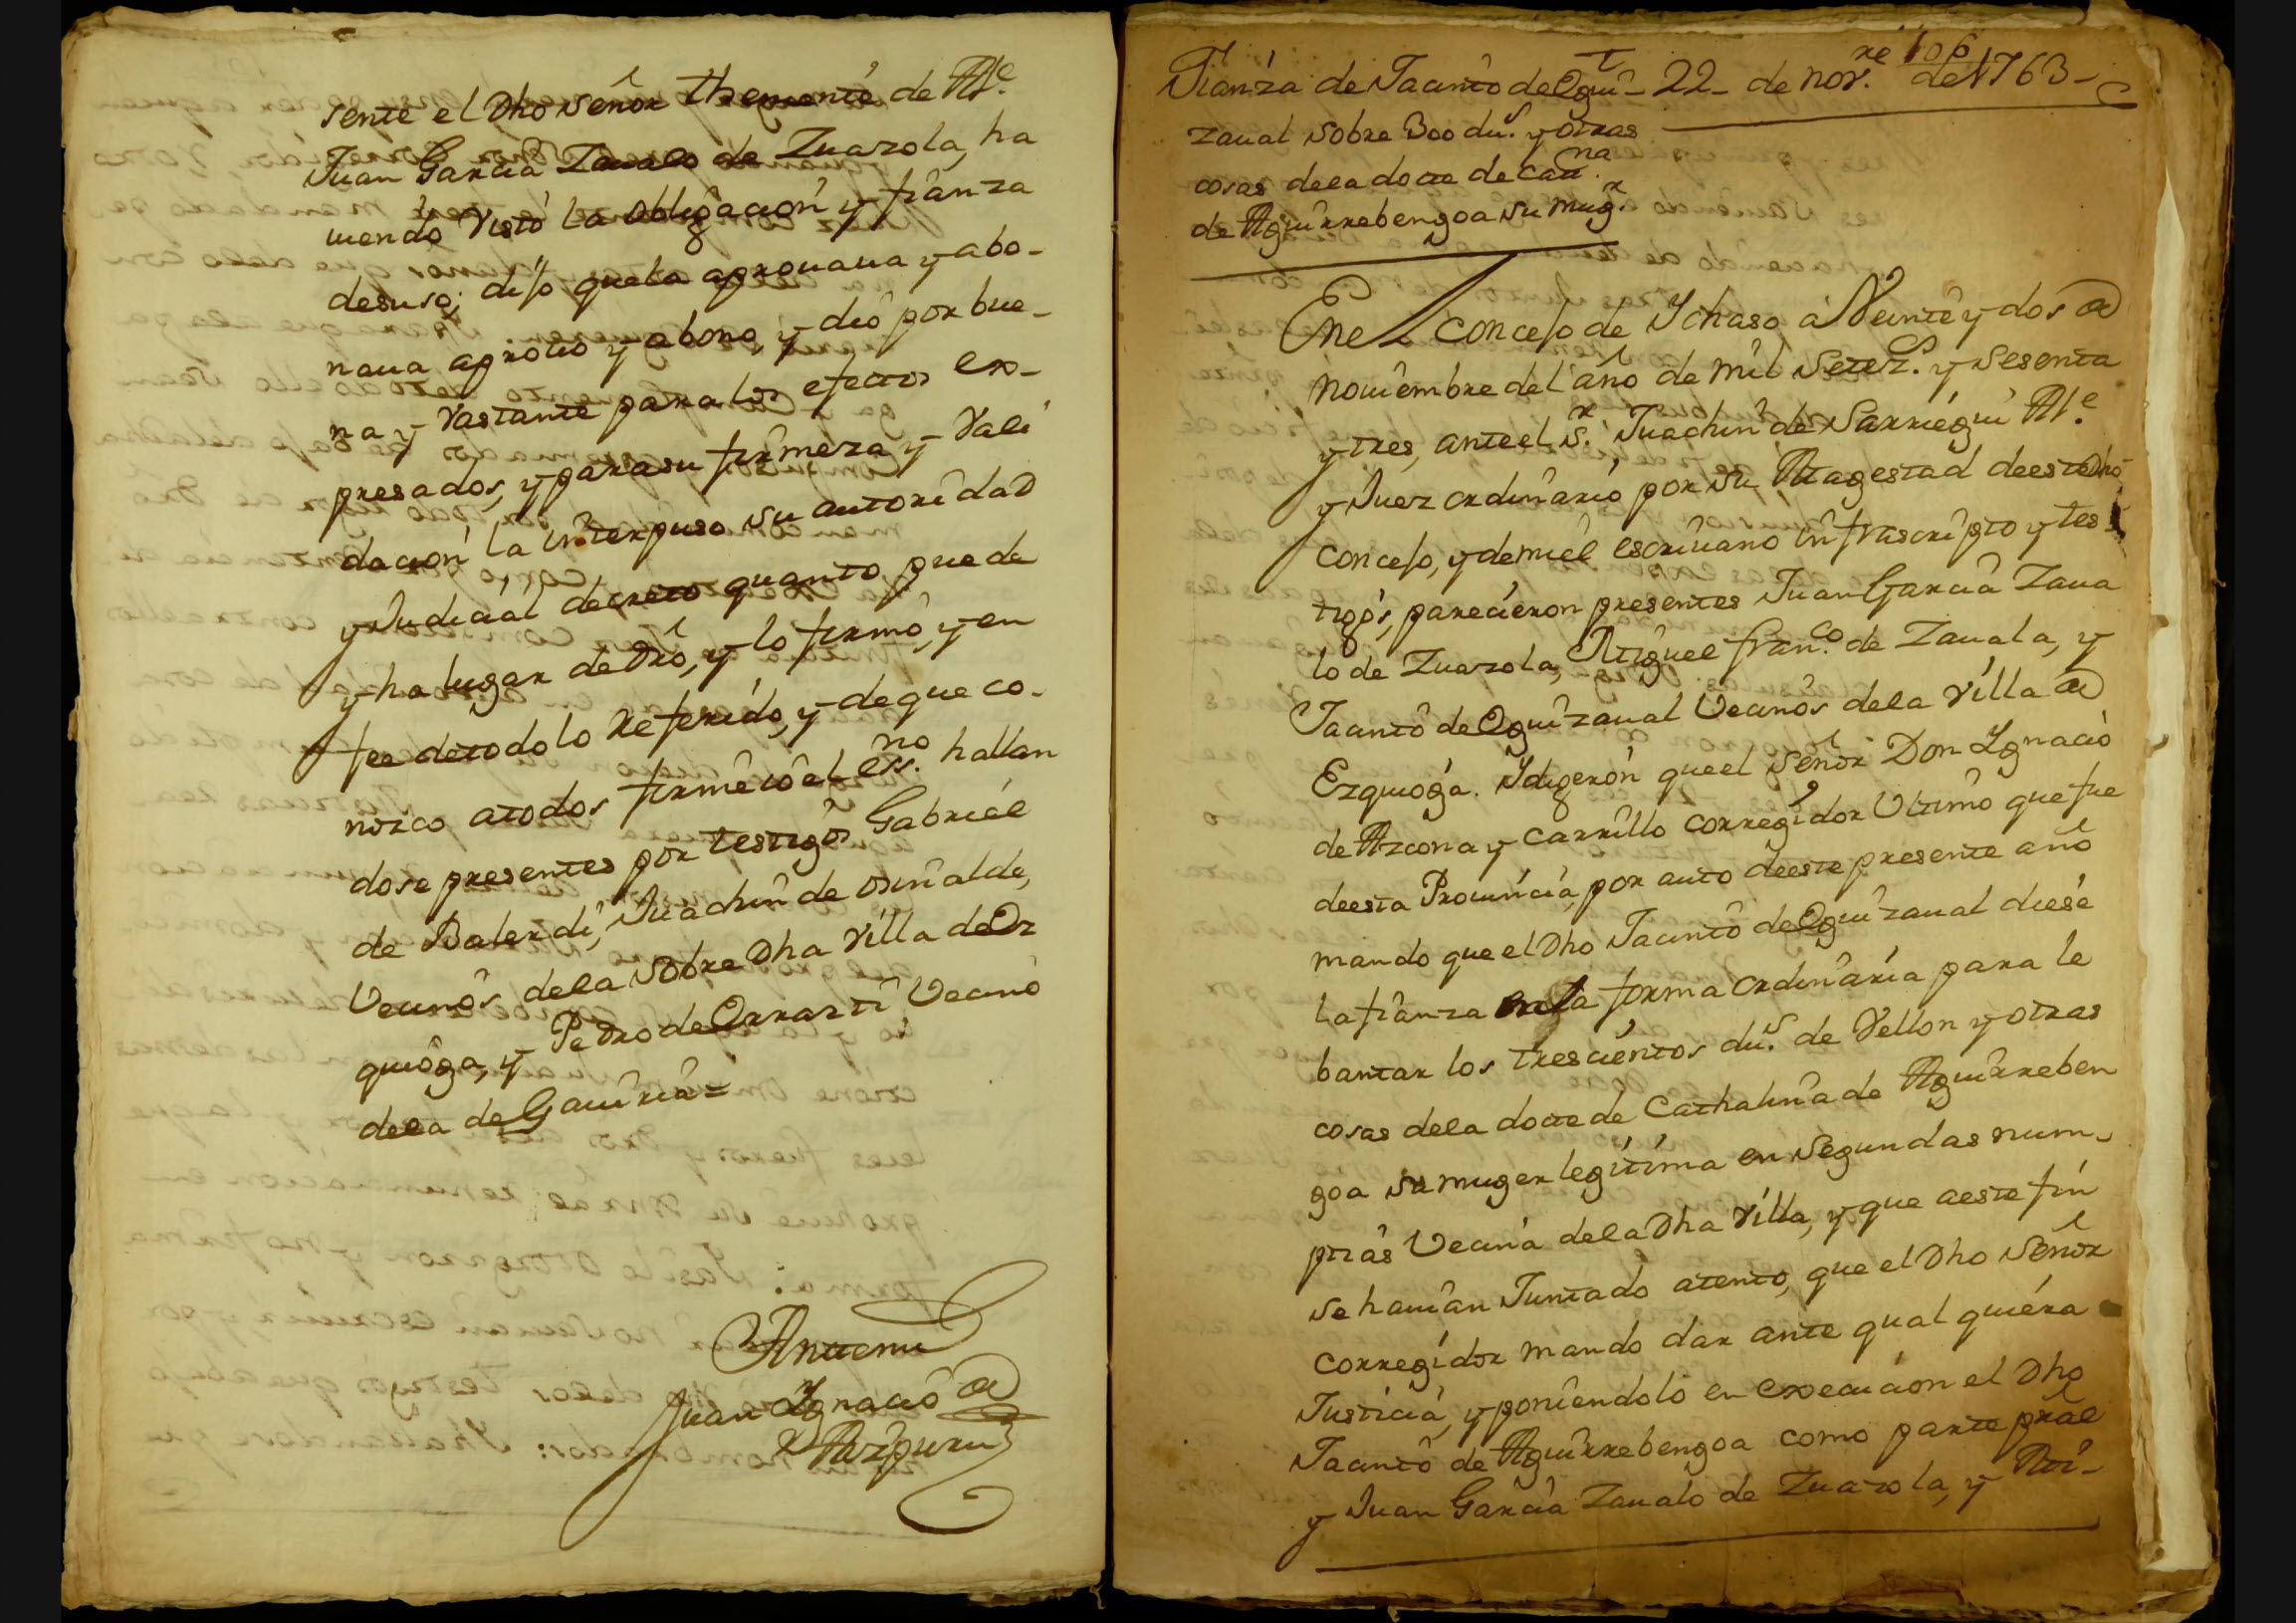 sente el Dho Señor Theniente de Alc.e
Juan Garcia Zaualo de Zuazola, ha
uiendo Visto la obligacion y fianza
desuso; dijo que la aprouaua y abo-
naua aprouo y abono, y dio por bue-
na y Vastante para los efectos ex-
presados, y para su firmeza y Vali
dacion la interpuso su autoridad
y Judicial decreto quanto puede
y ha lugar de Dro, y lo firmò, y en
fee de todo lo Referido, y de que co-
nozco atodos firmè io el ess.no hallan
dose presentes por testigos Gabriel
de Balerdi, Juachin de Oriñalde,
Vecinos dela sobre Dha Villa de Ez
quioga, y Pedro de Orrazti Vecino
dela de Gauiria=
Antemi
Juan Ignacio de
Aizpuru
106
Fianza de Jacinto de Egui- 22- de nov.re de 1763-
zaual sobre 300 du.s y otras
cosas dela dote de Cat.na
de Aguirrebengoa su mug.r
En el concejo de Ichaso á Veinte y dos de
nouiembre del año de mil Setez.s y sesenta
y tres, ante el S.r Juachin de Sarriegui Alc.e
y Juez ordinario por su Magestad de este Dho
concejo, y de mi el escriuano infrascripto y tes
tigos, parecieron presentes Juan Garcia Zaua
lo de Zuazola, Miguel fran.co de Zauala, y
Jacinto de Eguizaual Vecinos dela Villa de
Ezquioga. Y digeron que el Señor Don Ygnacio
de Azcona y Carrillo corregidor Vltimo que fue
de esta Prouincia, por auto de este presente año
mando que el Dho Jacinto de Eguizaual diese
la fianza en la forma ordinaria para le
bantar los trescientos du.s de Vellon y otras
cosas dela dote de Cathalina de Aguirreben
goa su muger legitima en segundas num-
ptias Vecina dela Dha Villa, y que a este fin
se hauian Juntado atento, que el Dho Señor
corregidor mando dar ante qual quiera
Justicia, y poniendolo en execucion el Dho
Jacinto de Aguirrebengoa como parte pral
y Juan Garcia Zaualo de Zuazola, y Mi-